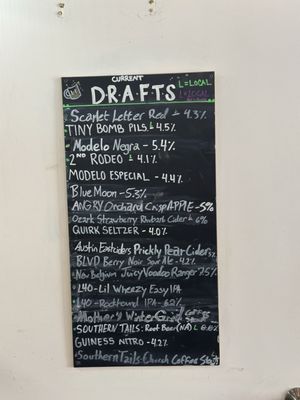 CURRENT
DRAFTS
L=LOCAL
Scarlet Letter Red L 4.3%
TINY BOMB PILS L 4.5%
Modelo Negra - 5.4%
2ND RODEO L 4.1%
MODELO ESPECIAL - 4.4%
Blue Moon - 5.3%
ANGRY Orchard CrispAPPLE - 5%
Ozark Strawberry Rhubarb Cider L 6%
QUIRK SELTZER - 4.0%
Austin Eastciders Prickly Pear Cider
BLVD Berry Noir Sour Ale - 4.2%
New Belgium Juicy Voodoo Ranger 7.5%
L40 - Lil Wheezy Easy IPA
L40 - Rockhound IPA - 6.2%
Mother's Winter Grind
SOUTHERN TAILS: Root Beer (NA) L
GUINESS NITRO - 4.2%
Southern Tails Church Coffee